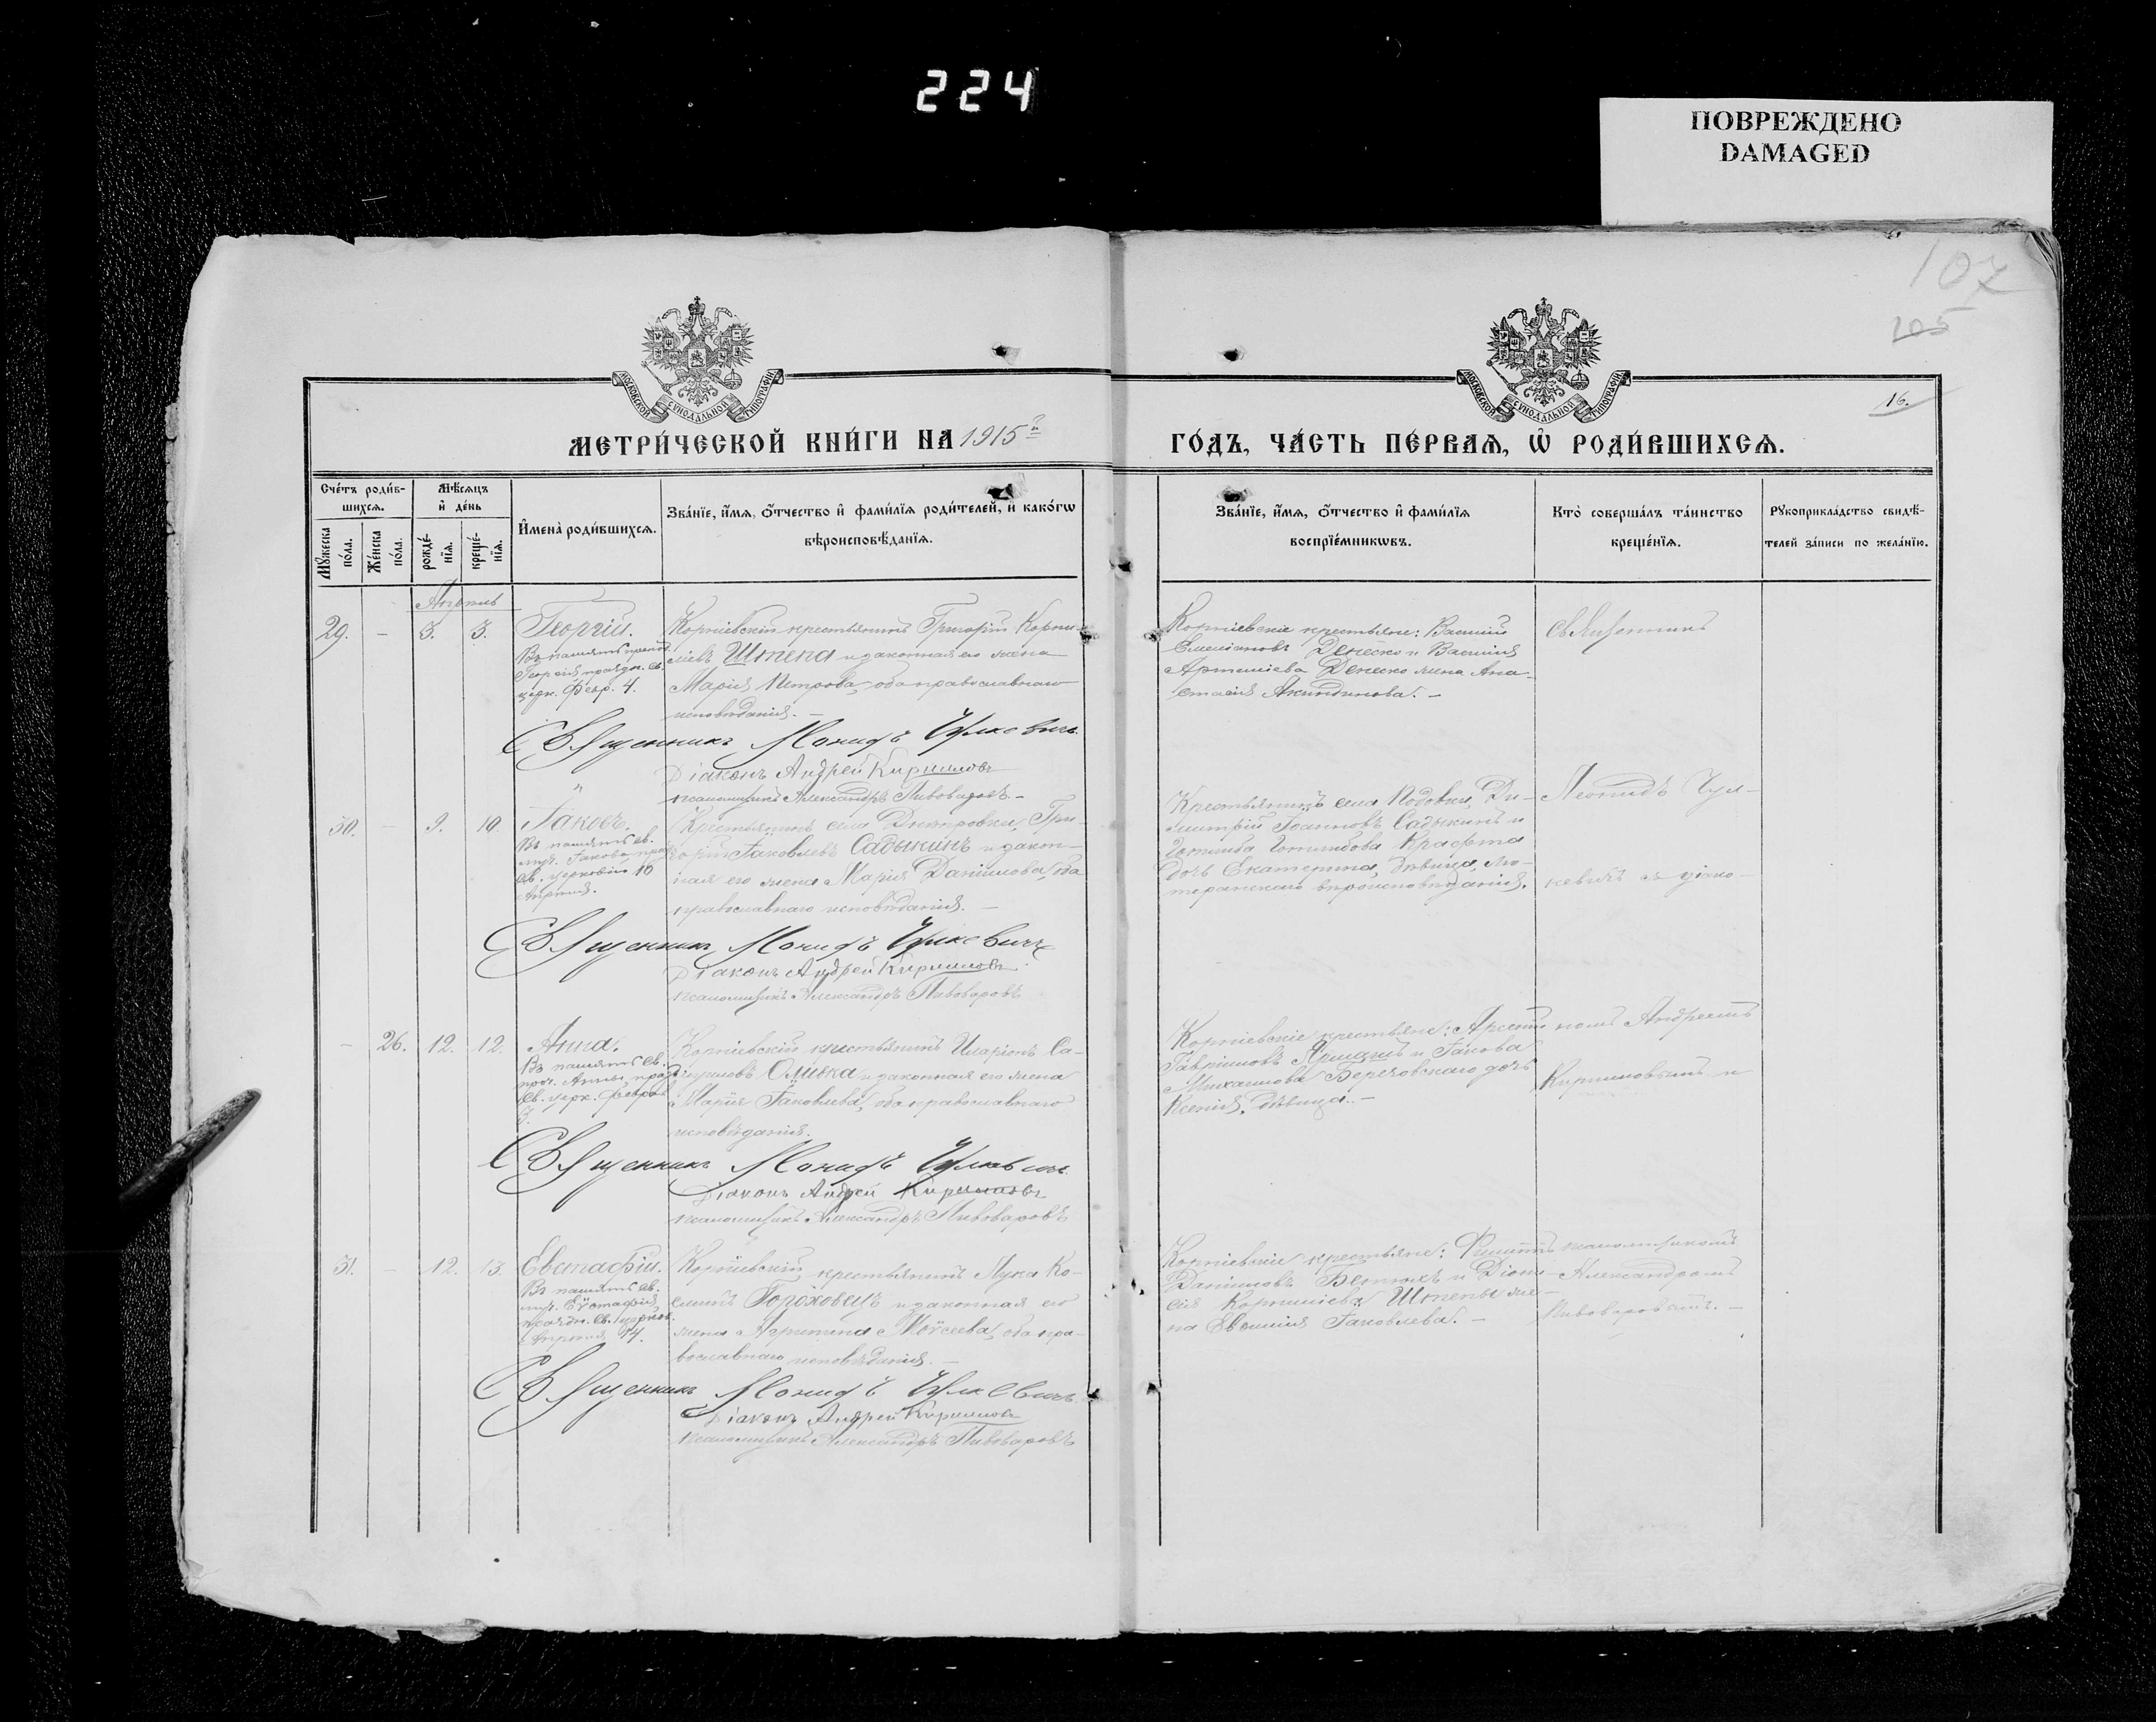 224
ПОВРЕЖДЕНО
DAMAGED
107
205
16.
МОСКОВСКОЙ СѴНОДАЛЬНОЙ ТИПОГРАФІИ
МОСКОВСКОЙ СѴНОДАЛЬНОЙ ТИПОГРАФІИ
МЕТРИ́ЧЕСКОЙ КНИ́ГИ НА 1915 й
ГО́ДЪ, ЧА́СТЬ ПЕ́РВАѦ, Ѡ҆ РОДИ́ВШИХСѦ.
Сче́тъ роди́в-
шихсѧ.
Мꙋ́жеска
по́ла.
Же́нска
по́ла.
Мѣ́сѧцъ
и҆ де́нь
рожде́-
нїѧ.
креще́-
нїѧ.
И҆мена̀ роди́вшихсѧ.
Зва́нїе, и҆́мѧ, ѻ҆́тчество и҆ фами́лїѧ роди́телей, и҆ како́гѡ
вѣроисповѣ́данїѧ.
Зва́нїе, и҆́мѧ, ѻ҆́тчество и҆ фами́лїѧ
воспрїе́мникѡвъ.
Кто̀ соверша́лъ та́инство
креще́нїѧ.
Рꙋкоприкла́дство свидѣ́-
телей за́писи по жела́нїю.
Апрѣль
29. - 3. 3. Георгій.
Въ память препод.
Георгія праздн. св.
церк. Февр. 4.
Корніевскій крестьянинъ Григорій Корни-
ліевъ Штепа и законная его жена
Марія Петрова, оба православнаго
исповѣданія. -
Священникъ Леонидъ Чулкевичъ
Діаконъ Андрей Кирилловъ
псаломщикъ Александръ Пивоваровъ. -
Корніевскіе крестьяне: Василій
Емельяновъ Денеско и Василія
Артеміева Денеско жена Ана-
стасія Акиндинова. -
Священникъ
30. - 9. 10. Іаковъ.
Въ память св.
муч. Іакова праз.
св. церковію 10
Апрѣля.
Крестьянинъ села Дмитровки, Гри-
горій Іаковлевъ Садыкинъ и закон-
ная его жена Марія Даніилова, оба
православнаго исповѣданія. -
Священникъ Леонидъ Чулкевичъ
Діаконъ Андрей Кирилловъ
псаломщикъ Александръ Пивоваровъ
Крестьянинъ села Подовки, Ди-
митрій Іоанновъ Садыкинъ и
Готлиба Готлибова Крафта
дочь Екатерина, дѣвица, лю-
теранскаго вѣроисповѣданія.
Леонидъ Чул-
кевичъ съ діако-
- 26. 12. 12. Анна.
Въ память св.
прор. Анны, праз.
св. церк. Февра.
3.
Корніевскій крестьянинъ Иларіонъ Са-
Оливка и законная его жена
Марія Іаковлева, оба православнаго
исповѣданія.
Священникъ Леонидъ Чулкевичъ
Діаконъ Андрей Кирилловъ
псаломщикъ Александръ Пивоваровъ
Корніевскіе крестьяне: Арсеній
Гавріиловъ и Іакова
Михаилова Береговскаго дочь
Ксенія, дѣвица. -
номъ Андреемъ
Кирилловымъ и
31. - 12. 13. Евстафій.
Въ память св.
муч. Еѵстафія,
праздн. св. церков.
Апрѣля 14.
Корніевскій крестьянинъ Лука Ко-
Гороховецъ и законная его
жена Агрипина Моѵсеева, оба пра-
вославнаго исповѣданія. -
Священникъ Леонидъ Чулкевичъ
Діаконъ Андрей Кирилловъ
псаломщикъ Александръ Пивоваровъ
Корніевскіе крестьяне: Филиппъ
Даніиловъ и Діони-
сія Корниліева Штепы же-
на Евфимія Іаковлева. -
псаломщикомъ
Александромъ
Пивоваровымъ. -